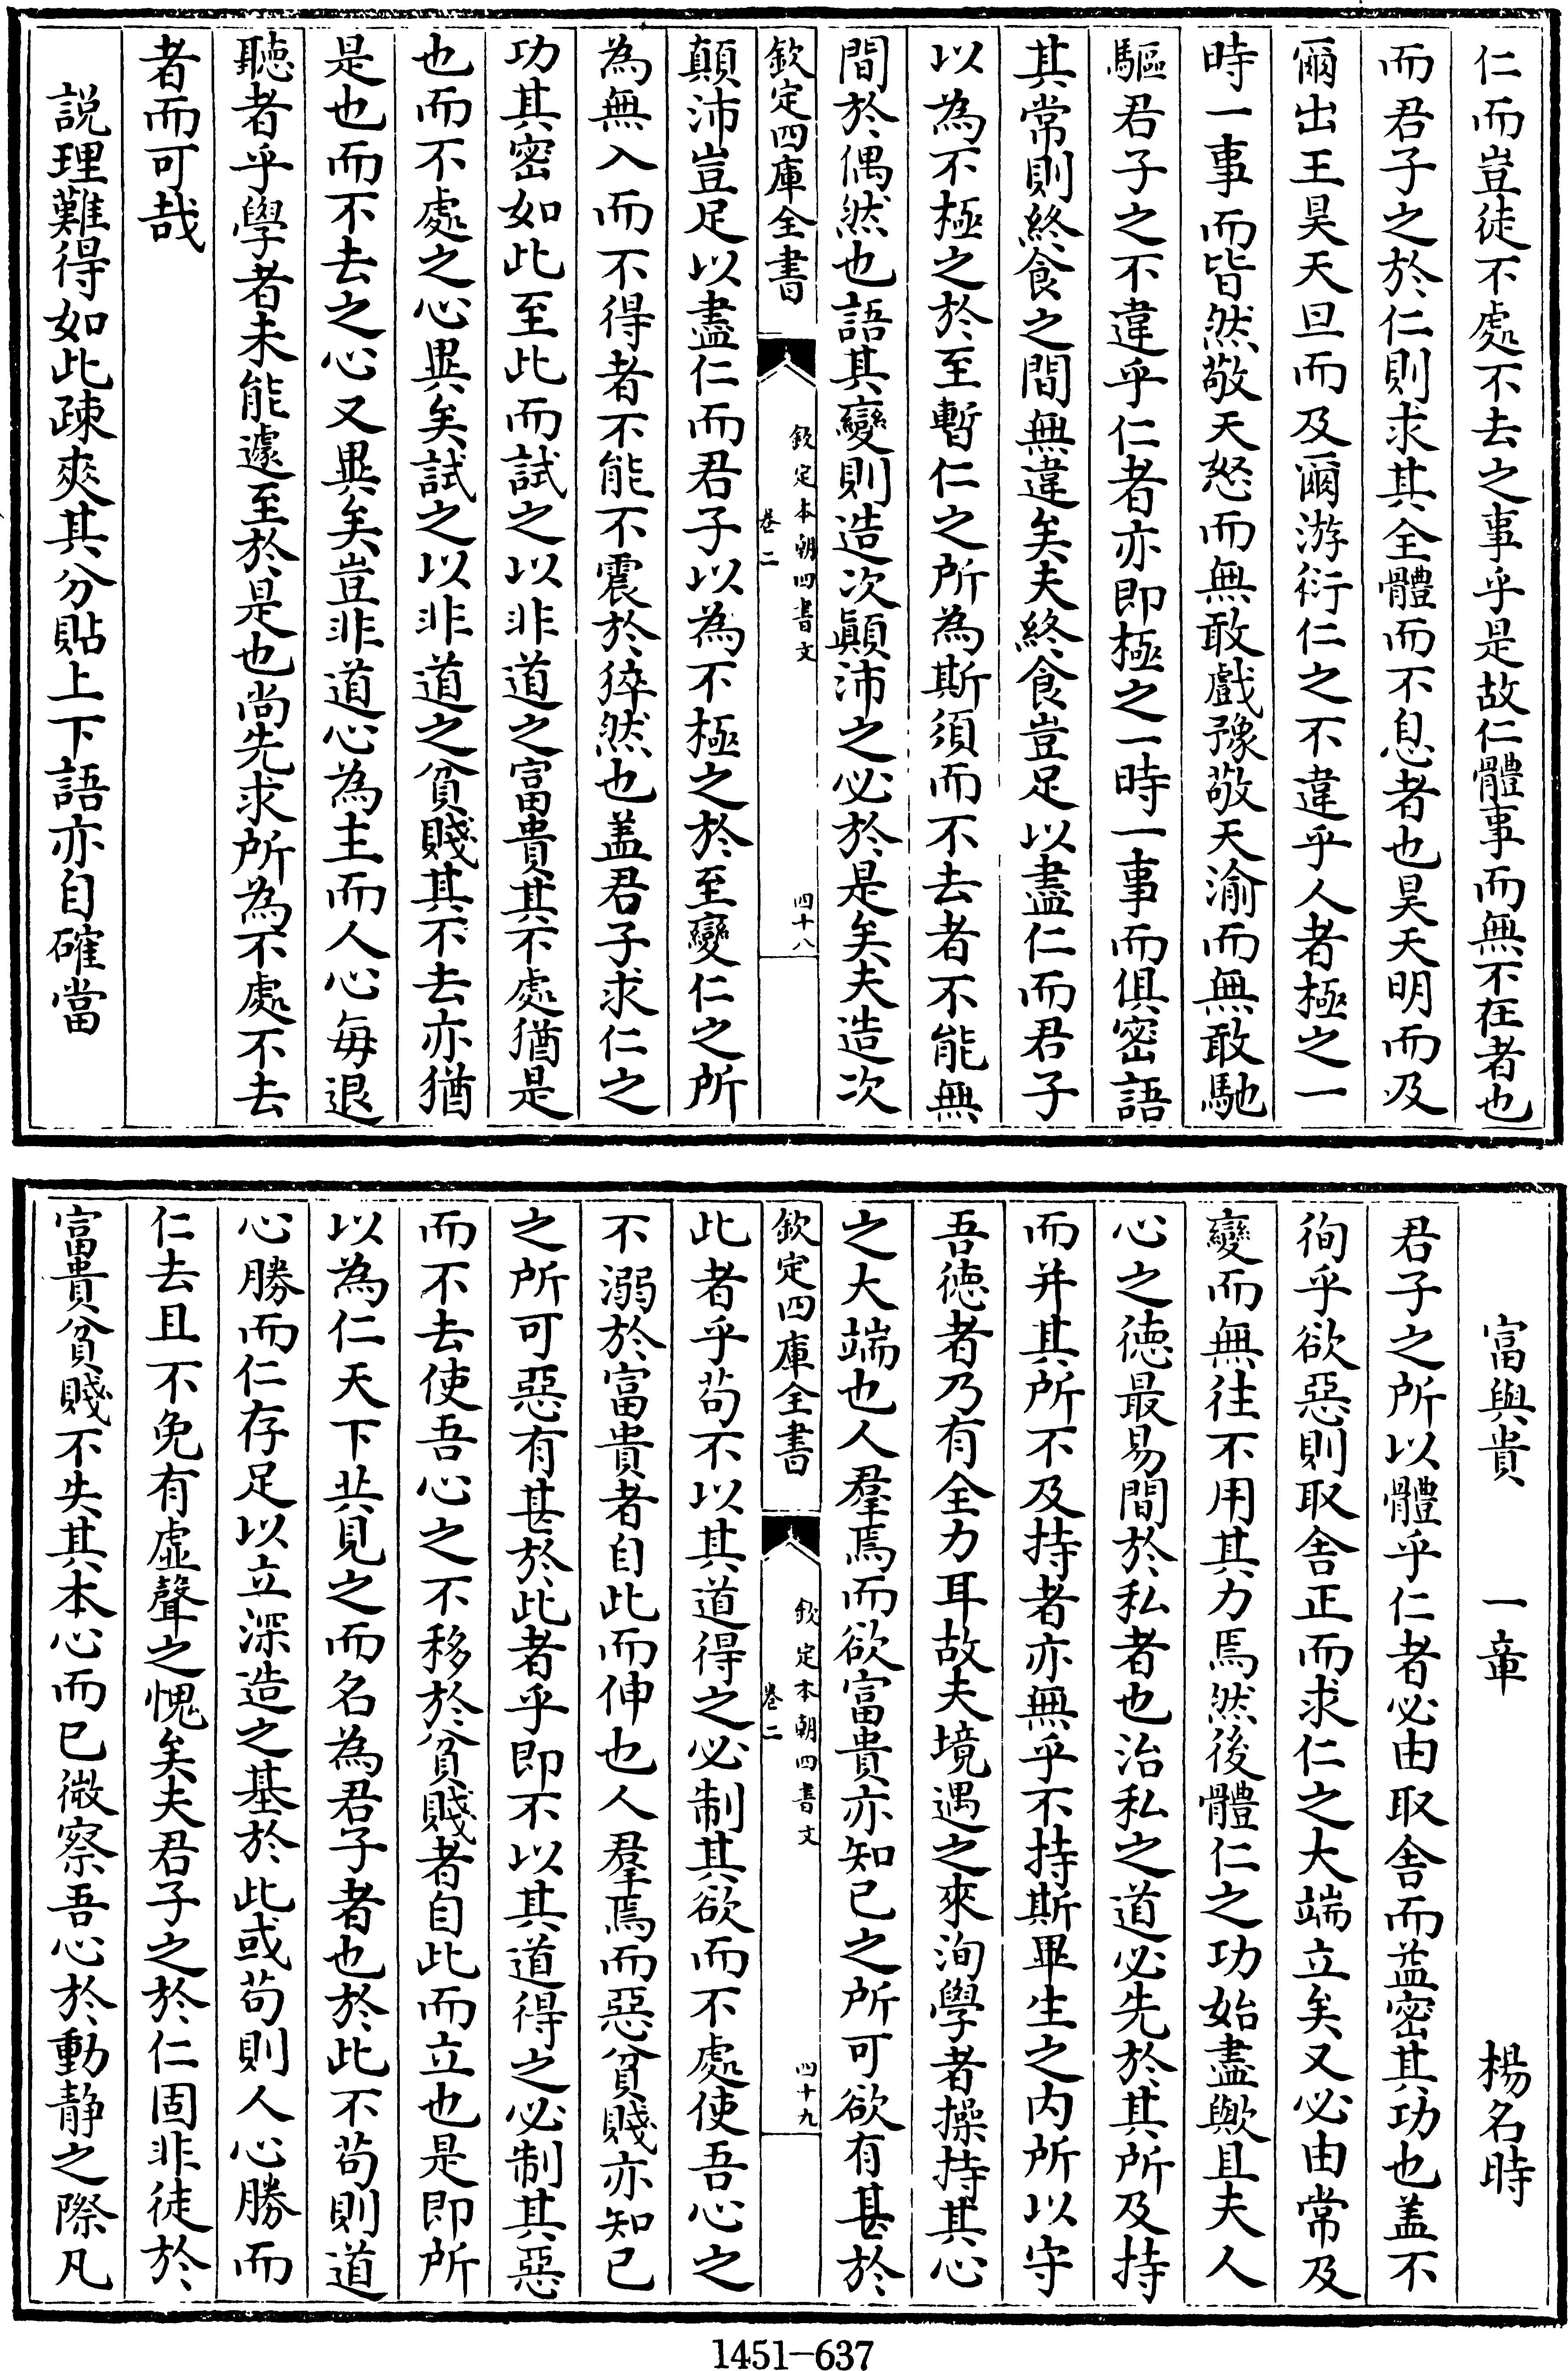 仁而豈徒不處不去之事乎是故仁體事而無不在者也
而君子之於仁則求其全體而不息者也昊天明而及
爾出王昊天旦而及爾游衍仁之不違乎人者極之一
時一事而皆然敬天怒而無敢戲豫敬天渝而無敢馳
驅君子之不違乎仁者亦即極之一時一事而俱密語
其常則終食之間無違矣夫終食豈足以盡仁而君子
以為不極之於至暫仁之所為斯須而不去者不能無
間於偶然也語其變則造次顛沛之必於是矣夫造次
欽定四庫全書
欽定本朝四書文
卷二
四十八
顛沛豈足以盡仁而君子以為不極之於至變仁之所
為無入而不得者不能不震於猝然也盖君子求仁之
功其密如此至此而試之以非道之富貴其不處猶是
也而不處之心異矣試之以非道之貧賤其不去亦猶
是也而不去之心又異矣豈非道心為主而人心每退
聽者乎學者未能遽至於是也尚先求所為不處不去
者而可哉
說理難得如此疎爽其分貼上下語亦自確當
富與貴 一章 楊名時
君子之所以體乎仁者必由取舍而益密其功也盖不
徇乎欲惡則取舍正而求仁之大端立矣又必由常及
變而無往不用其力焉然後體仁之功始盡歟且夫人
心之德最易間於私者也治私之道必先於其所及持
而并其所不及持者亦無乎不持斯畢生之内所以守
吾德者乃有全力耳故夫境遇之來洵學者操持其心
之大端也人羣焉而欲富貴亦知已之所可欲有甚於
欽定四庫全書
欽定本朝四書文
卷二
四十九
此者乎苟不以其道得之必制其欲而不處使吾心之
不溺於富貴者自此而伸也人羣焉而惡貧賤亦知已
之所可惡有甚於此者乎即不以其道得之必制其惡
而不去使吾心之不移於貧賤者自此而立也是即所
以為仁天下共見之而名為君子者也於此不苟則道
心勝而仁存足以立深造之基於此或苟則人心勝而
仁去且不免有虛聲之愧矣夫君子之於仁固非徒於
富貴貧賤不失其本心而已微察吾心於動静之際凡
1451-637